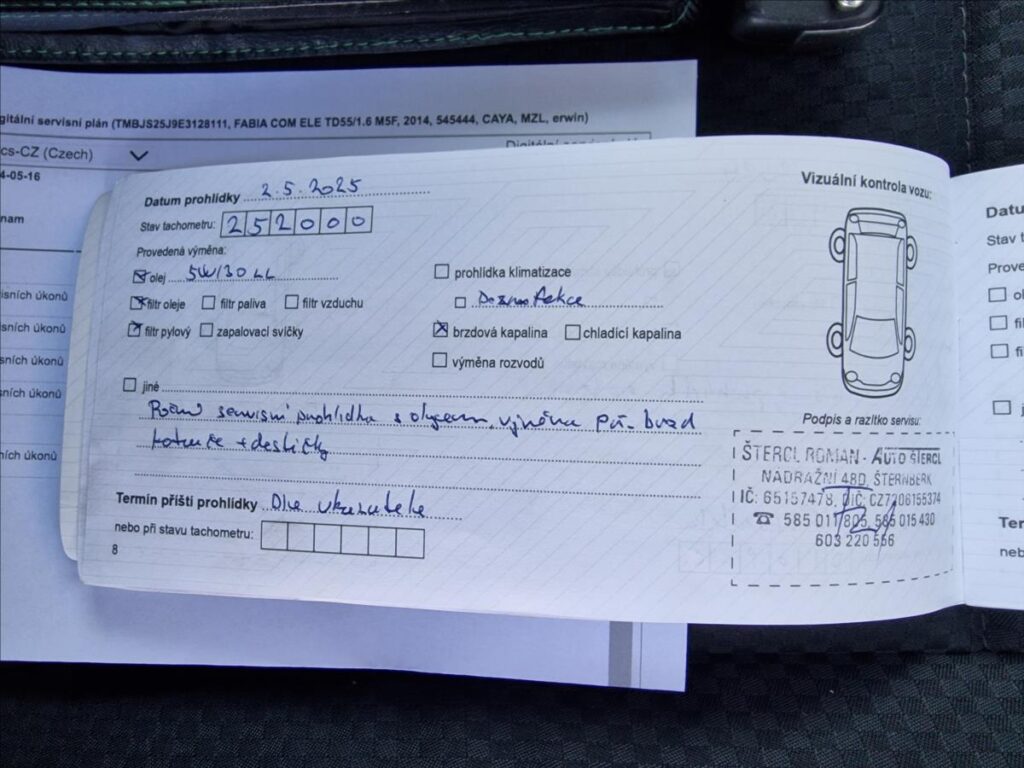 gitální servisní plán (TMBJS25J9E3128111, FABIA COM ELE TD55/1.6 M5F, 2014, 545444, CAYA, MZL, erwin)
cs-CZ (Czech)
4-05-16
nam
isních úkonů
isních úkonů
sních úkonů
sních úkonů
ch úkonů
Datum prohlídky 2.5.2025
Stav tachometru: 252000
Provedená výměna:
olej 5W/30 LL
filtr oleje filtr paliva filtr vzduchu
filtr pylový zapalovací svíčky
prohlídka klimatizace
brzdová kapalina chladicí kapalina
výměna rozvodů
jiné
servisní prohlídka s olejem, výměna Př. brzd
kotouče + destičky
Termín příští prohlídky Dle ukazatele
nebo při stavu tachometru:
8
Vizuální kontrola vozu:
Podpis a razítko servisu:
ŠTERCL ROMAN - AUTO ŠTERCL
NÁDRAŽNÍ 48D, ŠTERNBERK
IČ: 65157478, DIČ: CZ7206155374
585 011 805, 585 015 430
603 220 556
Datu
Stav t
Prove
ol
fi
fi
j
Ter
neb